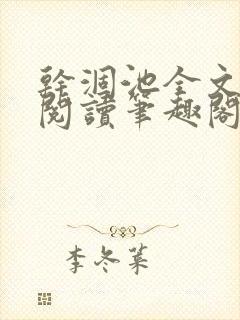 幹涸池全文
閱讀筆趣閣
李冬菓